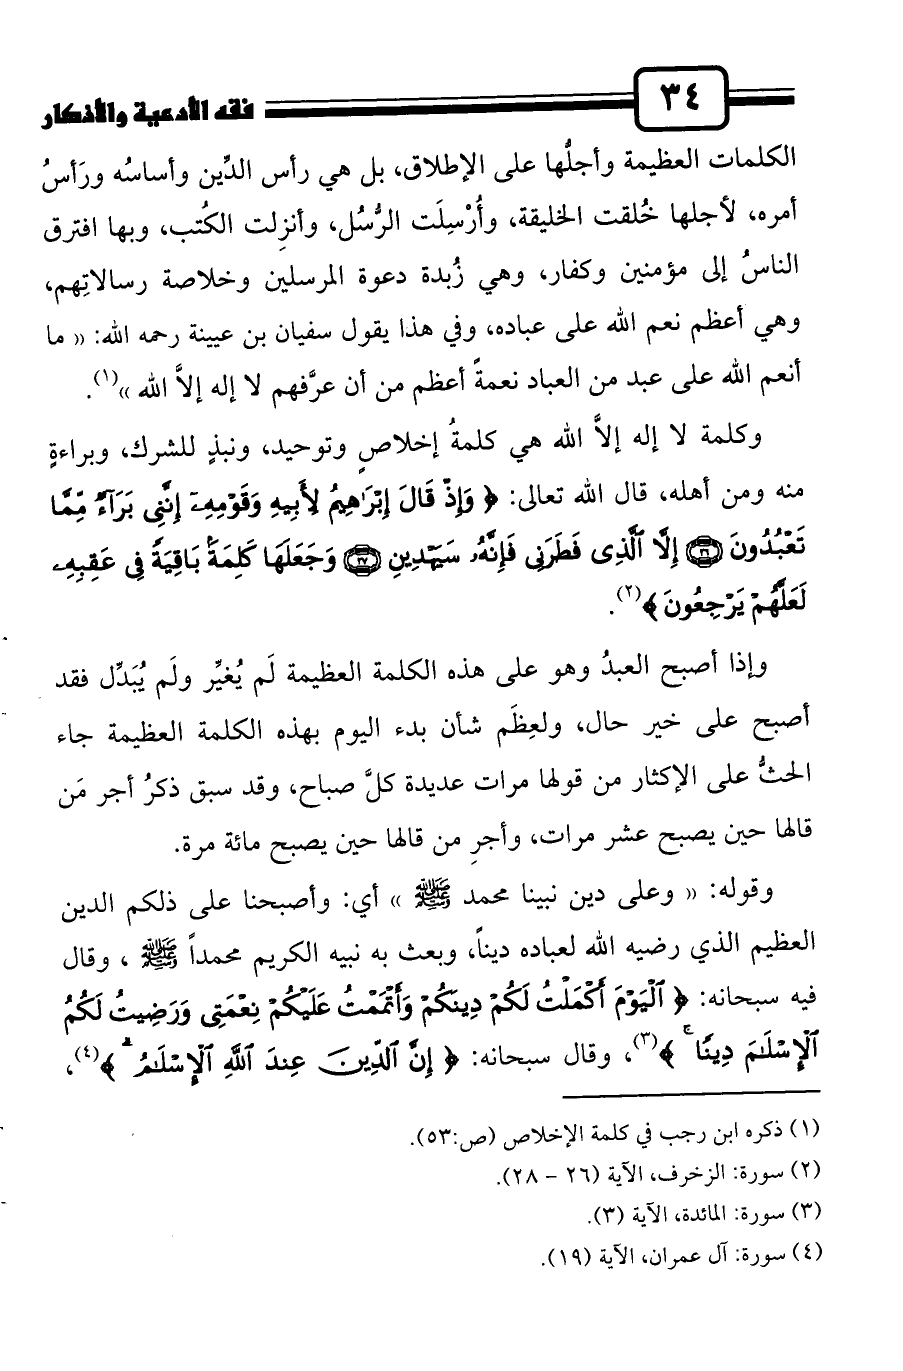 فقه الأدعية والأذكار ٣٤
الكلمات العظيمة وأجلُّها على الإطلاق، بل هي رأس الدِّين وأساسُه ورَأسُ
أمره، لأجلها خُلقت الخليقة، وأُرْسِلَت الرُّسُل، وأنزِلت الكُتب، وبها افترق
الناسُ إلى مؤمنين وكفار، وهي زُبدة دعوة المرسلين وخلاصة رسالاتِهم،
وهي أعظم نعم الله على عباده، وفي هذا يقول سفيان بن عيينة رحمه الله: « ما
أنعم الله على عبد من العباد نعمةً أعظم من أن عرَّفهم لا إله إلاَّ الله »(١).
وكلمة لا إله إلاَّ الله هي كلمةُ إخلاصٍ وتوحيد، ونبذٍ للشرك، وبراءةٍ
منه ومن أهله، قال الله تعالى: ﴿ وَإِذْ قَالَ إِبْرَٰهِيمُ لِأَبِيهِ وَقَوْمِهِۦٓ إِنَّنِى بَرَآءٌ مِّمَّا
تَعْبُدُونَ ۝٢٦ إِلَّا ٱلَّذِى فَطَرَنِى فَإِنَّهُۥ سَيَهْدِينِ ۝٢٧ وَجَعَلَهَا كَلِمَةًۢ بَاقِيَةً فِى عَقِبِهِۦ
لَعَلَّهُمْ يَرْجِعُونَ ﴾(٢).
وإذا أصبح العبدُ وهو على هذه الكلمة العظيمة لَم يُغيِّر ولَم يُبَدِّل فقد
أصبح على خير حال، ولعِظَم شأن بدء اليوم بهذه الكلمة العظيمة جاء
الحثُّ على الإكثار من قولها مرات عديدة كلَّ صباح، وقد سبق ذكرُ أجر مَن
قالها حين يصبح عشر مرات، وأجرِ من قالها حين يصبح مائة مرة.
وقوله: « وعلى دين نبينا محمد ﷺ » أي: وأصبحنا على ذلكم الدين
العظيم الذي رضيه الله لعباده ديناً، وبعث به نبيه الكريم محمداً ﷺ ، وقال
فيه سبحانه: ﴿ ٱلْيَوْمَ أَكْمَلْتُ لَكُمْ دِينَكُمْ وَأَتْمَمْتُ عَلَيْكُمْ نِعْمَتِى وَرَضِيتُ لَكُمُ
ٱلْإِسْلَٰمَ دِينًا ۚ ﴾(٣)، وقال سبحانه: ﴿ إِنَّ ٱلدِّينَ عِندَ ٱللَّهِ ٱلْإِسْلَٰمُ ۗ ﴾(٤)،
(١) ذكره ابن رجب في كلمة الإخلاص (ص:٥٣).
(٢) سورة: الزخرف، الآية (٢٦ – ٢٨).
(٣) سورة: المائدة، الآية (٣).
(٤) سورة: آل عمران، الآية (١٩).